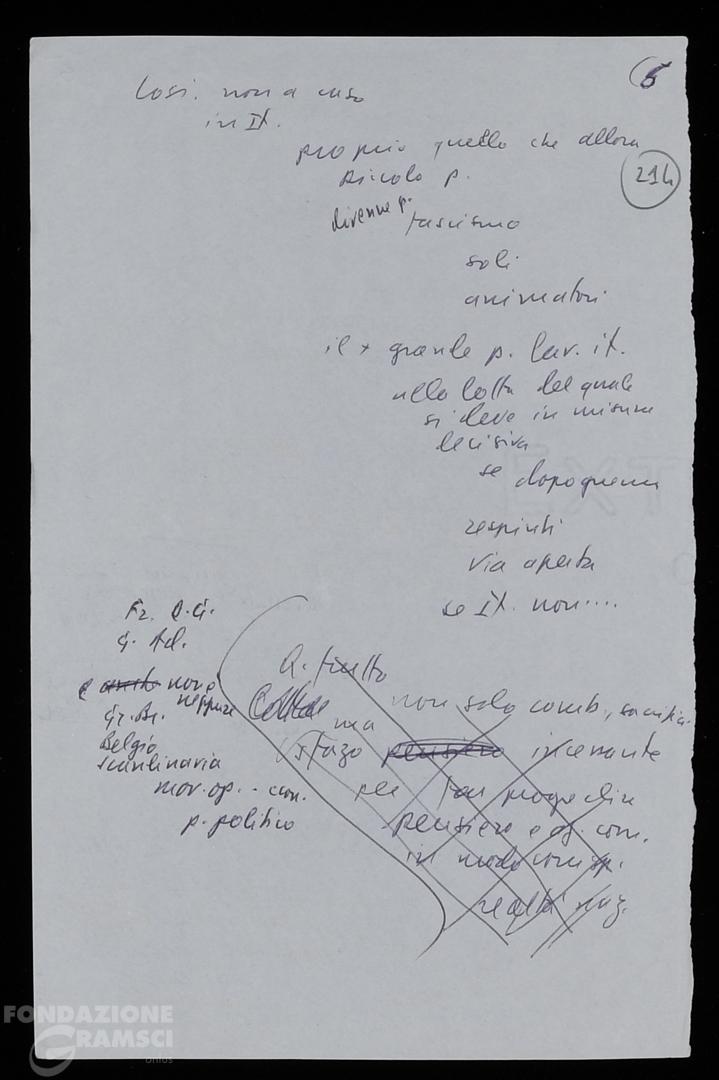 6
214
Così. non a caso
in It.
proprio quello che allora
piccolo p.
divenne p.
fascismo
soli
animatori
il + grande p. lav. it.
alla lotta del quale
si deve in misura
decisiva
se dopoguerra
respinti
via aperta
se It. non....
Fr. 
G. Ad.
e anche non è
neppure
Gr. Br.
Belgio
scandinavia
mov. op. - con.
p. politico
frutto
non solo comb, sacrifici
ma
sforzo pensiero incessante
per far progredire
pensiero e az. com.
in modo corrisp.
realtà naz.
FONDAZIONE
GRAMSCI
onlus